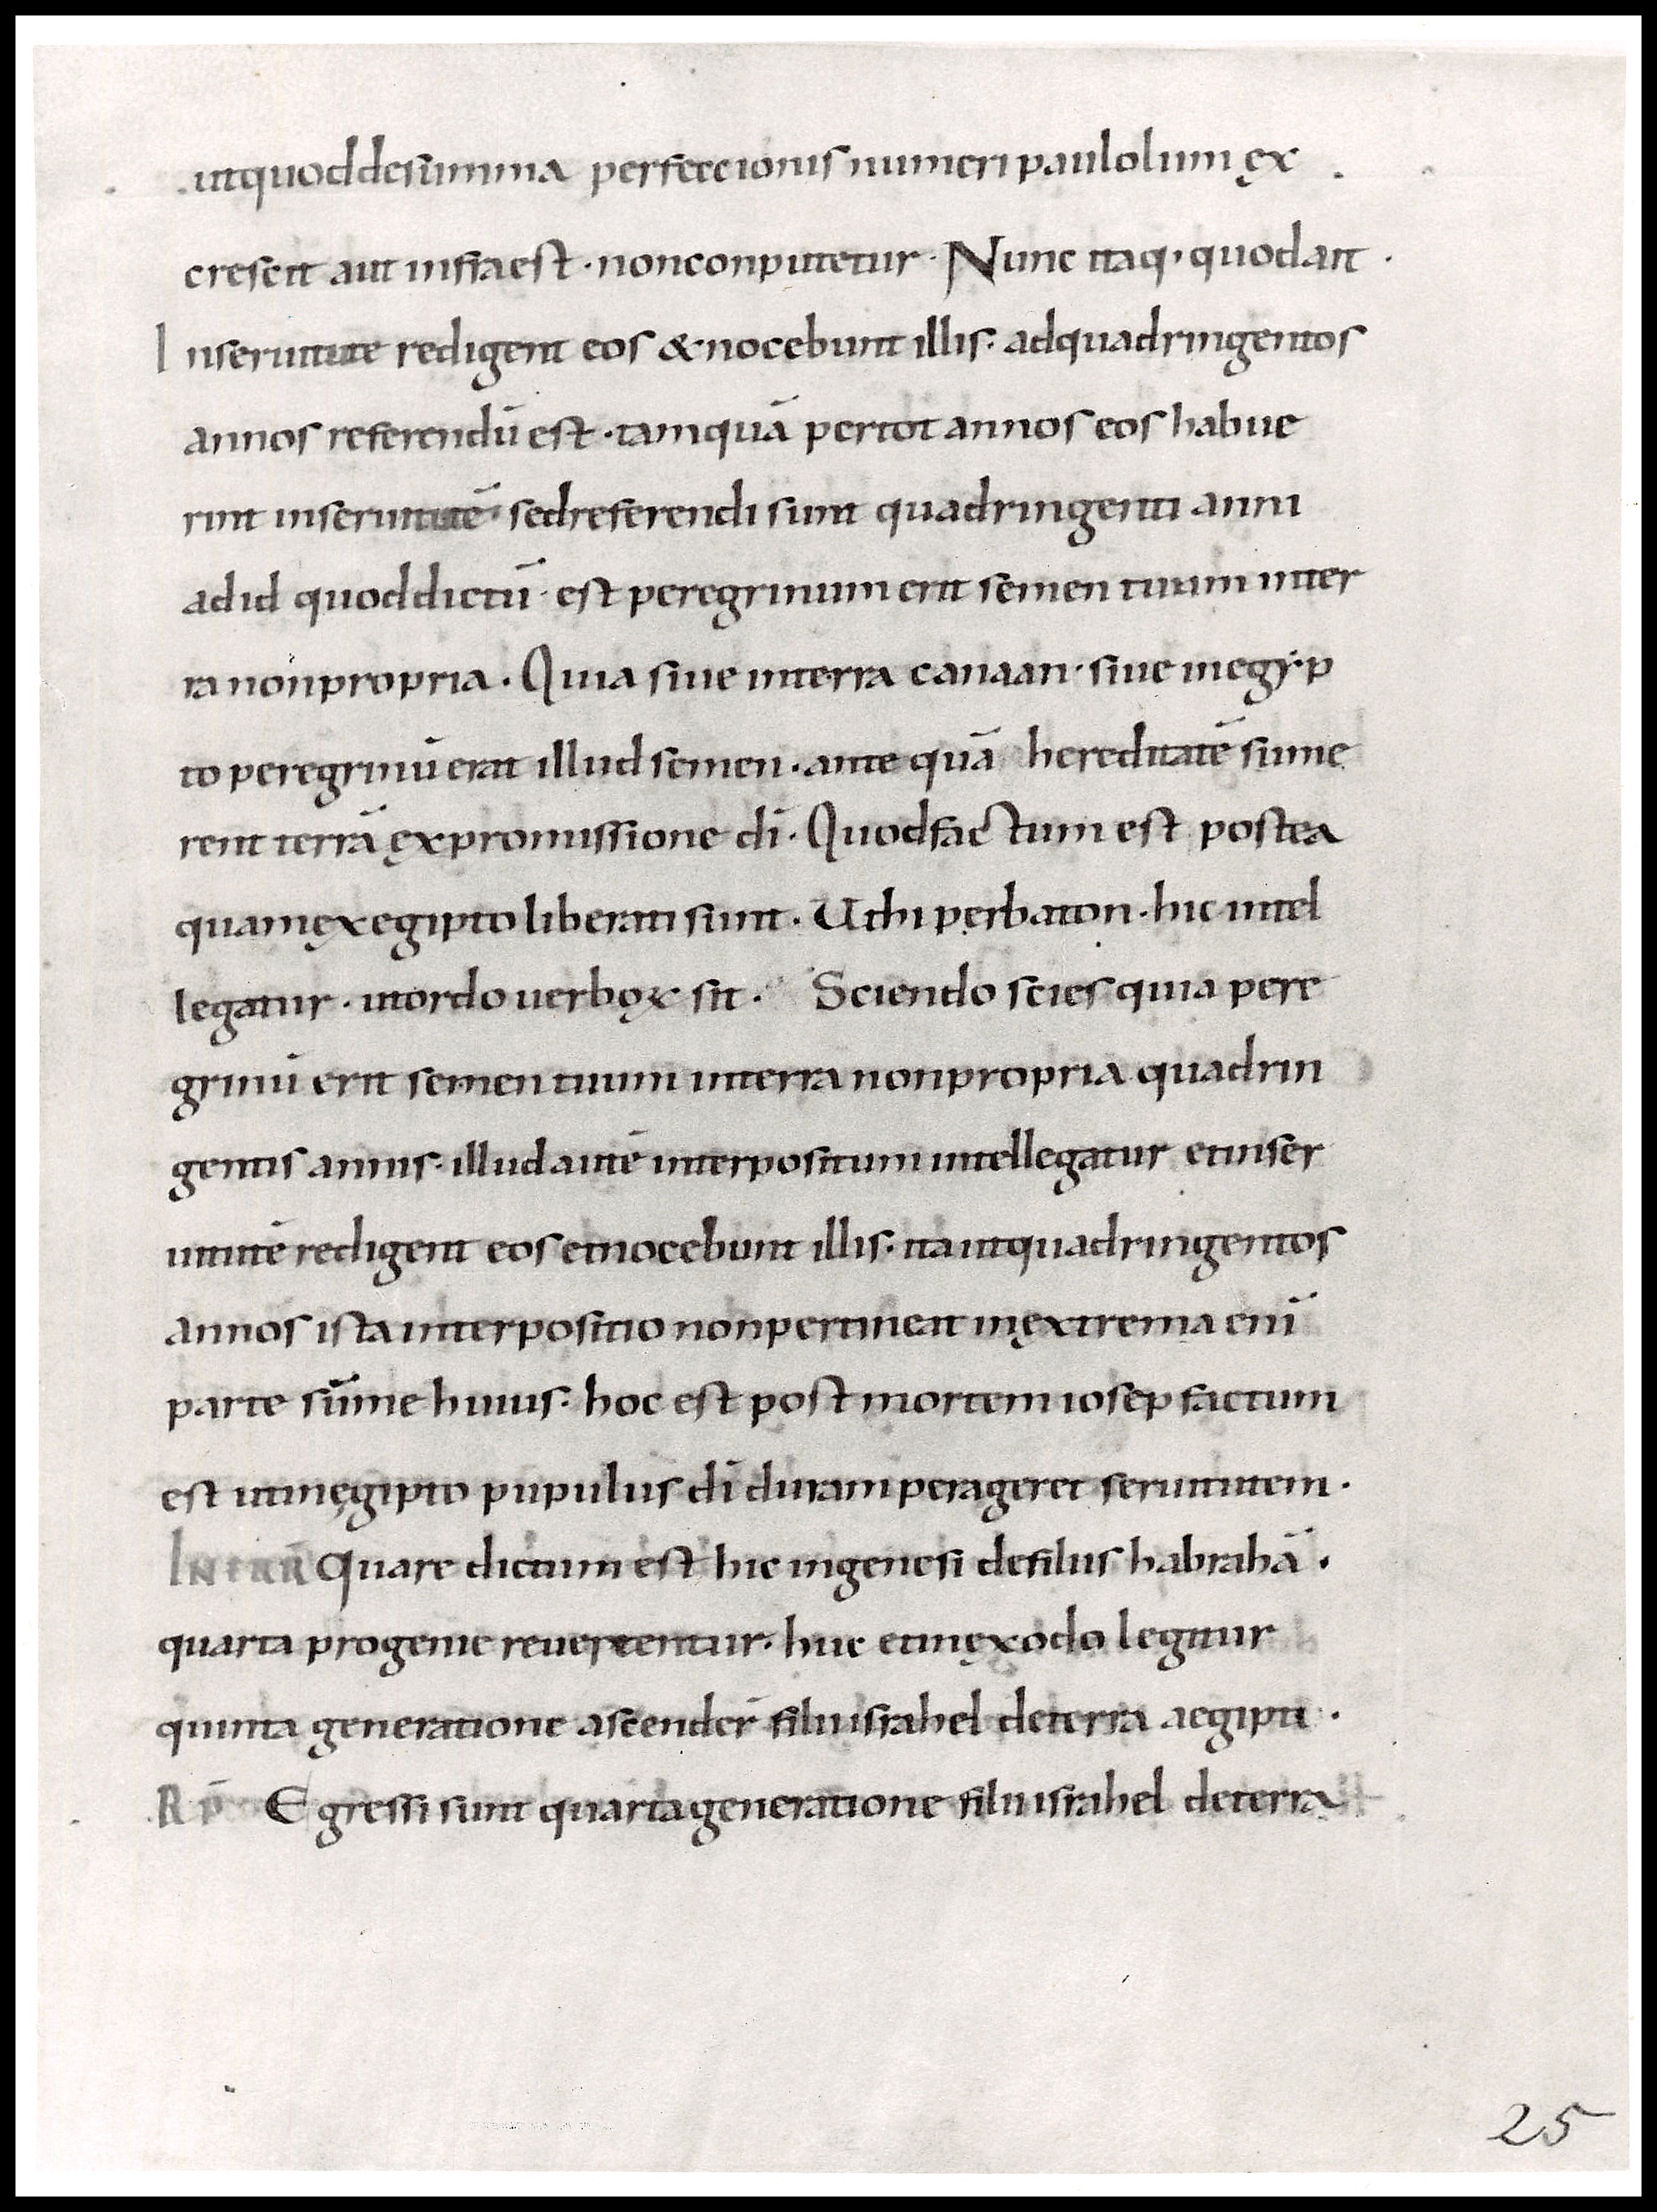 utquoddesumma perfeccionis numeri paulolum ęx
crescit aut infraest · nonconputetur · Nunc itaq; quodait ·
Inseruitute redigent eos & nocebunt illis · adquadringentos
annos referendū est · tamquā pertot annos eos habue
rint inseruitutē · sedreferendi sunt quadringenti anni
adid quoddictū · est peregrinum erit semen tuum inter
ra nonpropria · Quia siue interra canaan · siue inegyp
to peregrinū erat illud semen · ante quā hereditatē sume
rent terrā ęxpromissione dī · Quodfactum est postea
quamęxegipto liberati sunt · Uthiperbaton · hic intel
legatur · utordo uerboꝝ sit · Sciendo scies quia pere
grinū erit semen tuum interra nonpropria quadrin
gentis annis · illud autē interpositum intellegatur etinser
uitutē redigent eos etnocebunt illis · itautquadringentos
annos ista interpositio nonpertineat inęxtrema enī
parte sūme huius · hoc est post mortem iosep factum
est utinęgipto pupulus dī duram perageret seruitutem ·
INTRR̄ Quare dictum est hic ingenesi defilius habrahā ·
quarta progenie reuertentur · huc etinęxodo legitur
quinta generatione ascenderꝰ filii israhel deterra aegipti ·
R p̄ Egressi sunt quarta generatione filii israhel deterra
25